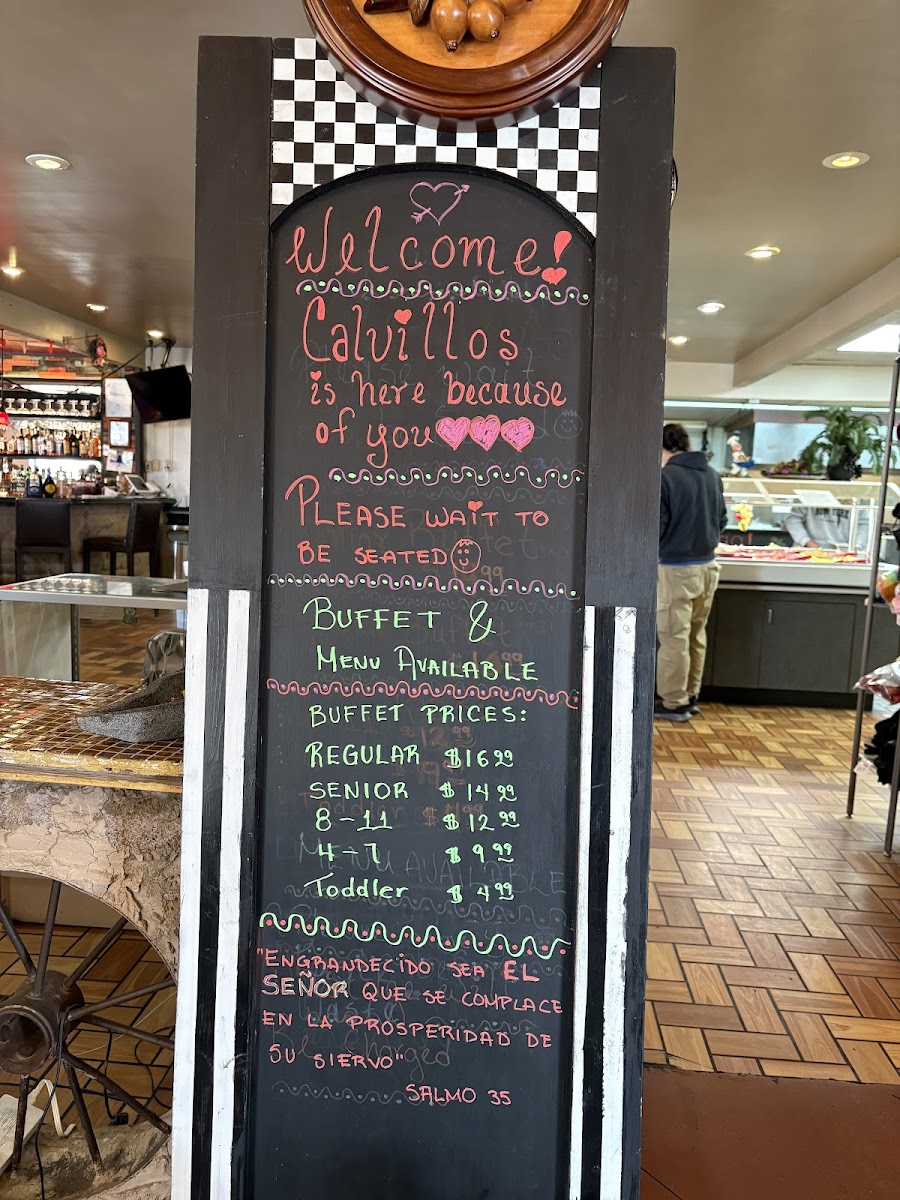 Welcome!
Calvillos
is here because
of you
PLEASE WAIT TO
BE SEATED
BUFFET &
MENU AVAILABLE
BUFFET PRICES:
REGULAR $16.99
SENIOR $14.99
8-11 $12.99
4-7 $9.99
Toddler $4.99
"ENGRANDECIDO SEA EL
SEÑOR QUE SE COMPLACE
EN LA PROSPERIDAD DE
SU SIERVO"
SALMO 35